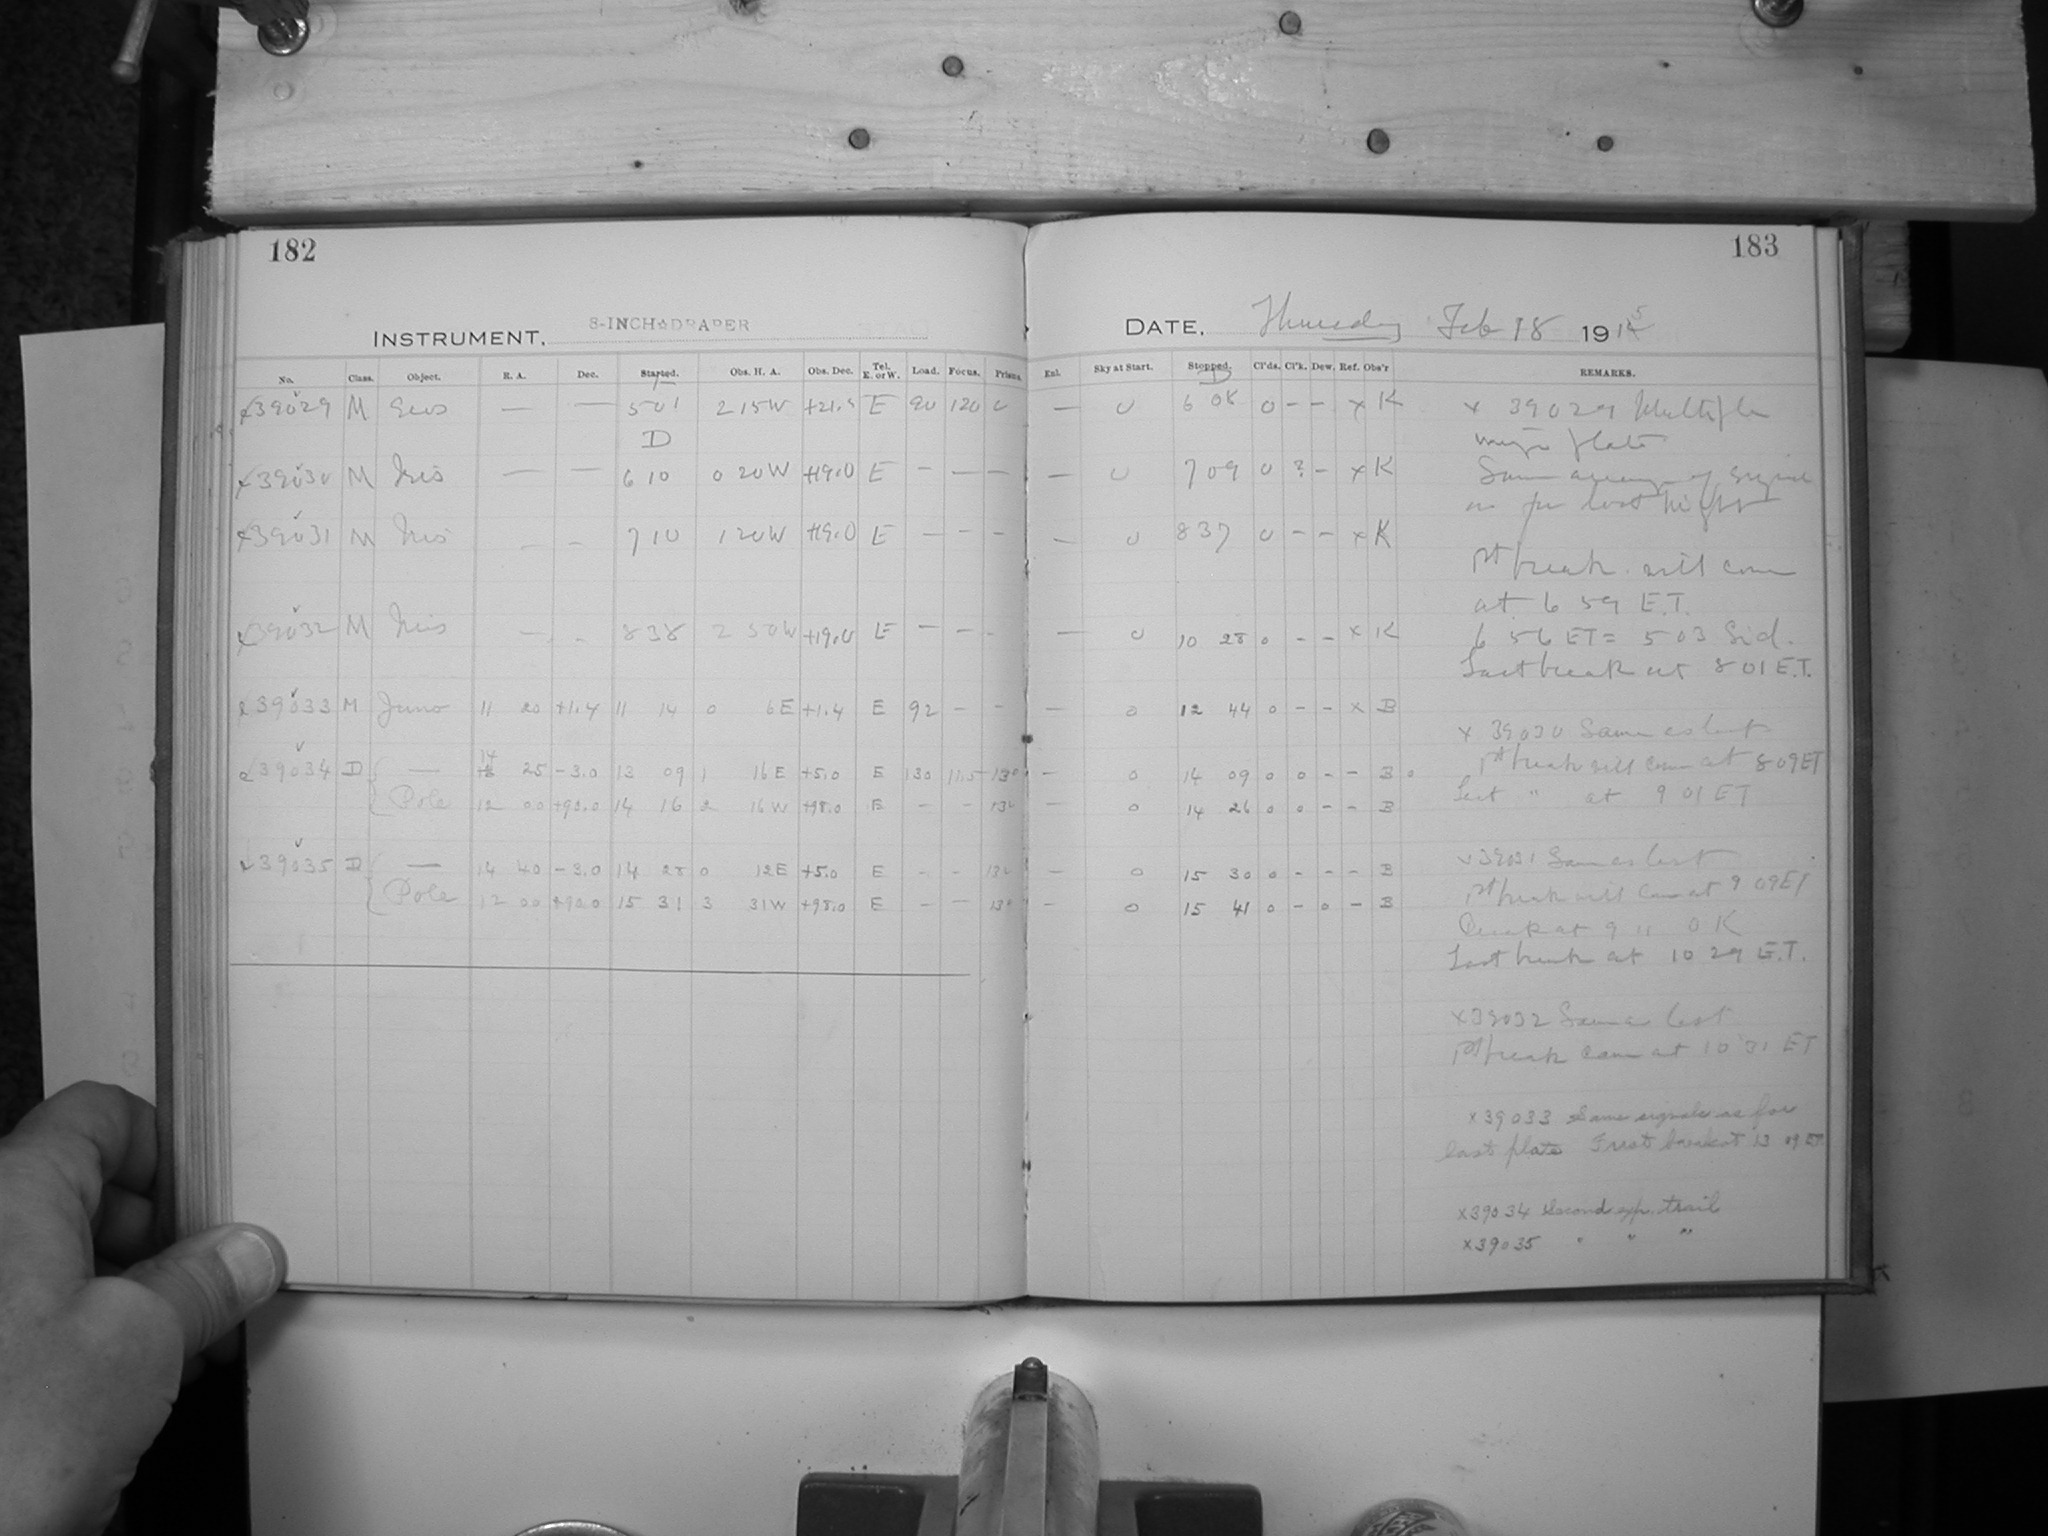 182
183
INSTRUMENT. 8-INCH DRAPER
DATE. Thursday Feb 18 1915
No. Class. Object. R. A. Dec. Started. Obs. H. A. Obs. Dec. Tel. E. or W. Load. Focus. Prism. Enl. Sky at Start. Stopped. Cl'ds. Cl'k. Dew. Ref. Obs'r REMARKS.
39029 M Eros — — 5 01 2 15W E 90 120 0 — 0 6 08 0 - - x K
D
39030 M Iris — — 6 10 0 20W +19.0 E - — — — 0 7 09 0 ? - x K
39031 M Iris - - 7 10 1 20W +19.0 E - - - — 0 8 37 0 - - x K
39032 M Iris - - 8 38 2 50W +19.0 E - - - — 0 10 28 0 - - x K
39033 M Juno 11 20 +1.4 11 14 0 6E +1.4 E 92 - - — 0 12 44 0 - - x B
39034 D — 14 25 -3.0 13 09 1 16E +5.0 E 130 11.5 13° - 0 14 09 0 0 - - B
Pole 12 00 +90.0 14 16 2 16W +98.0 E - - 13° - 0 14 26 0 0 - - B
39035 D — 14 40 -3.0 14 28 0 12E +5.0 E - - 13° - 0 15 30 0 - - - B
Pole 12 00 +90.0 15 31 3 31W +98.0 E - - 13° - 0 15 41 0 - 0 - B
x 39029 Multiple
plate
Same
as for last night
1st break will come
at 6 59 E.T.
6 56 ET = 5 03 Sid.
Last break at 8 01 E.T.
x 39030 Same as last
1st break will come at 8 09 ET
Last " at 9 01 ET
x 39031 Same as last
1st break will come at 9 09 ET
at 9 11 OK
Last break at 10 29 E.T.
x 39032 Same as last
1st break came at 10 31 ET
x 39033 Same signals as for
last plate First break at 13 09 ET
x 39034 Second exp. trail
x 39035 " " "